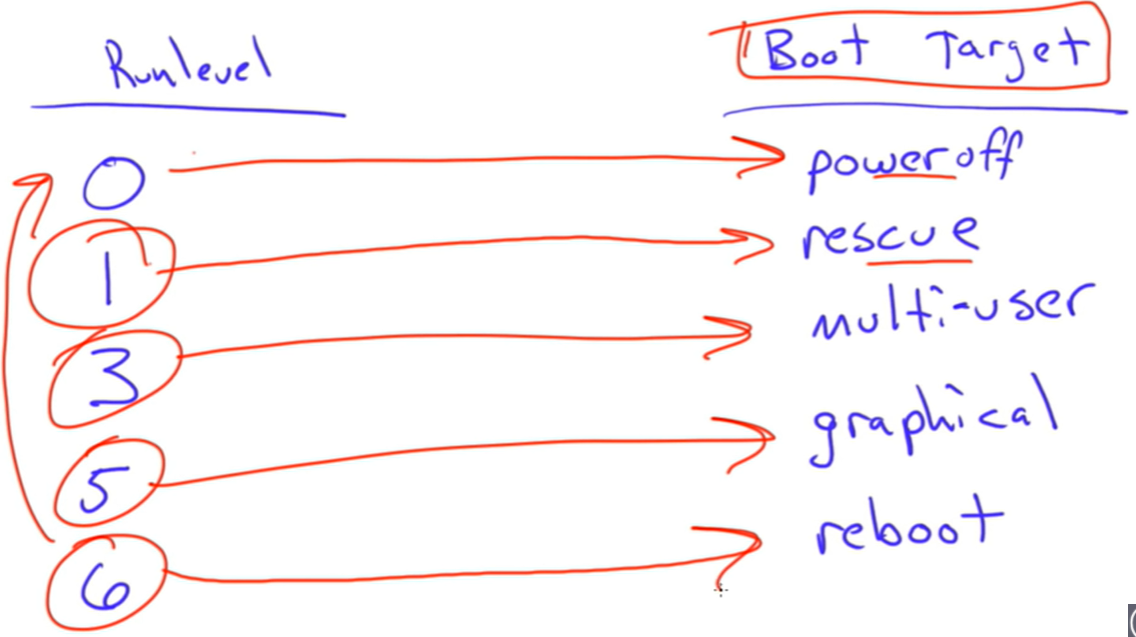 Runlevel Boot Target
0 poweroff
1 rescue
3 multi-user
5 graphical
6 reboot